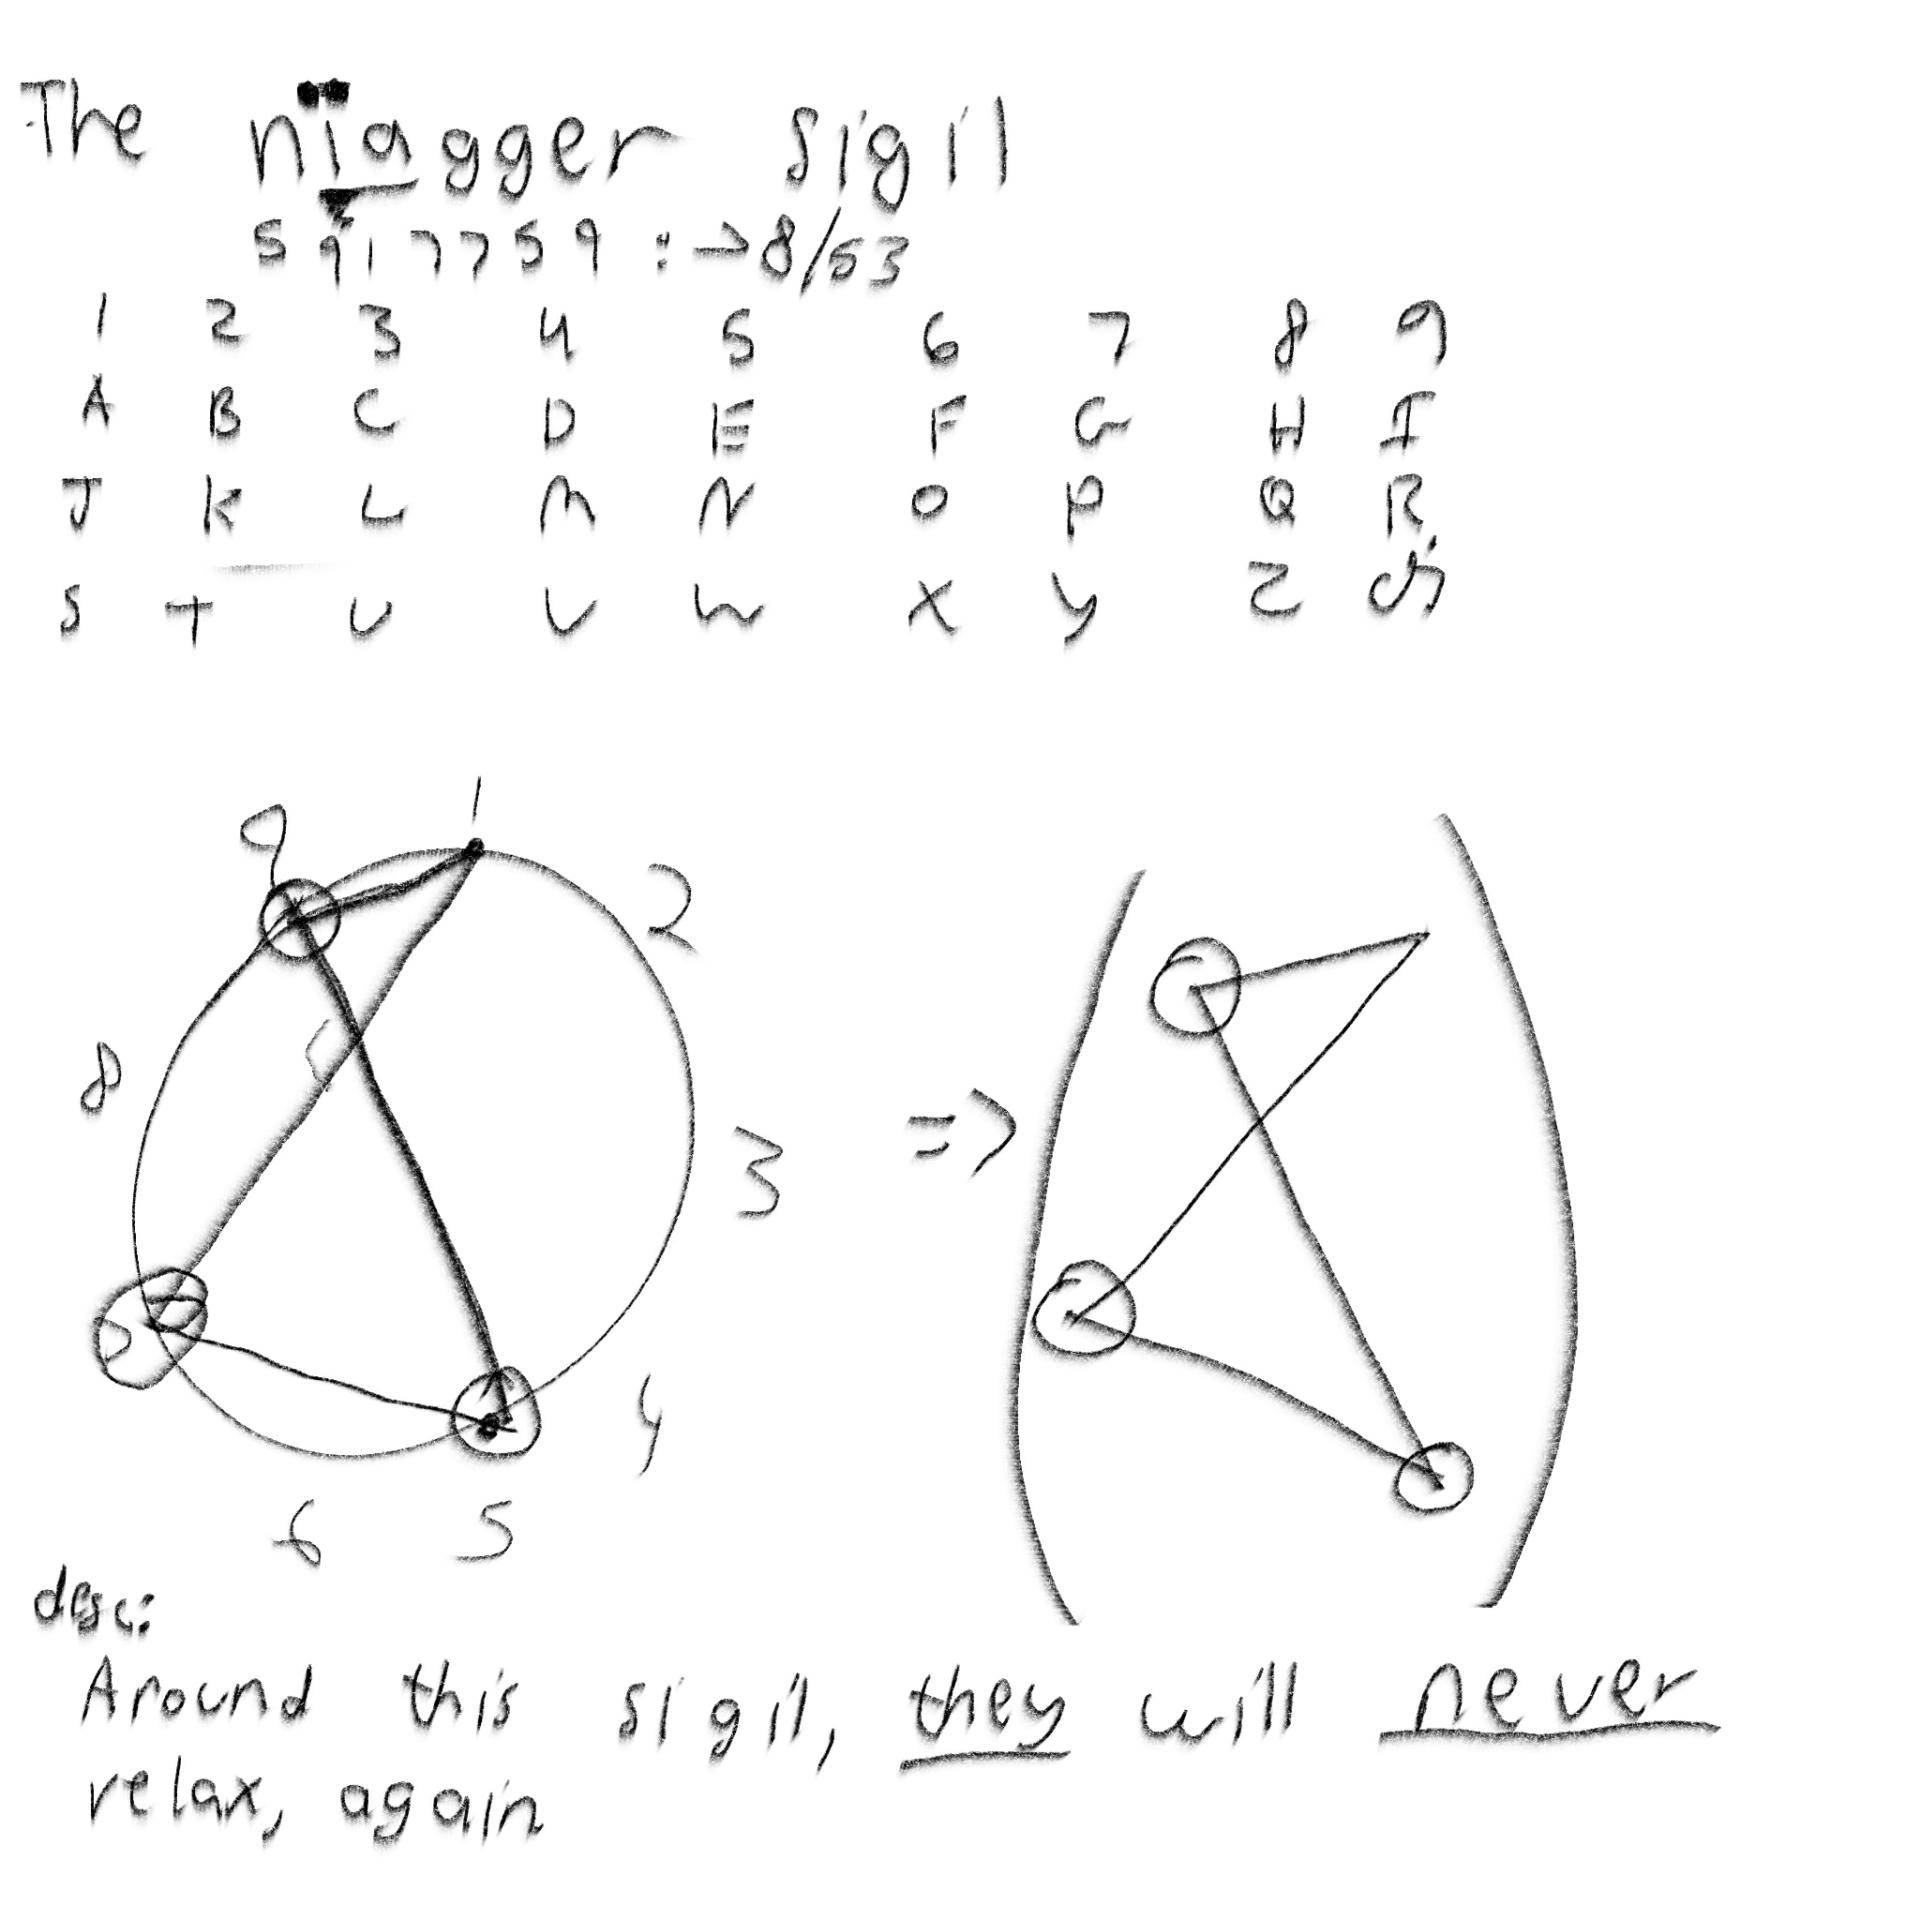 The nïagger sigil
5 9 1 7 7 5 9 : → 8/53
1 2 3 4 5 6 7 8 9
A B C D E F G H I
J K L M N O P Q R
S T U V W X Y Z
9 1
2
8
3
=>
4
6 5
desc:
Around this sigil, they will never
relax, again